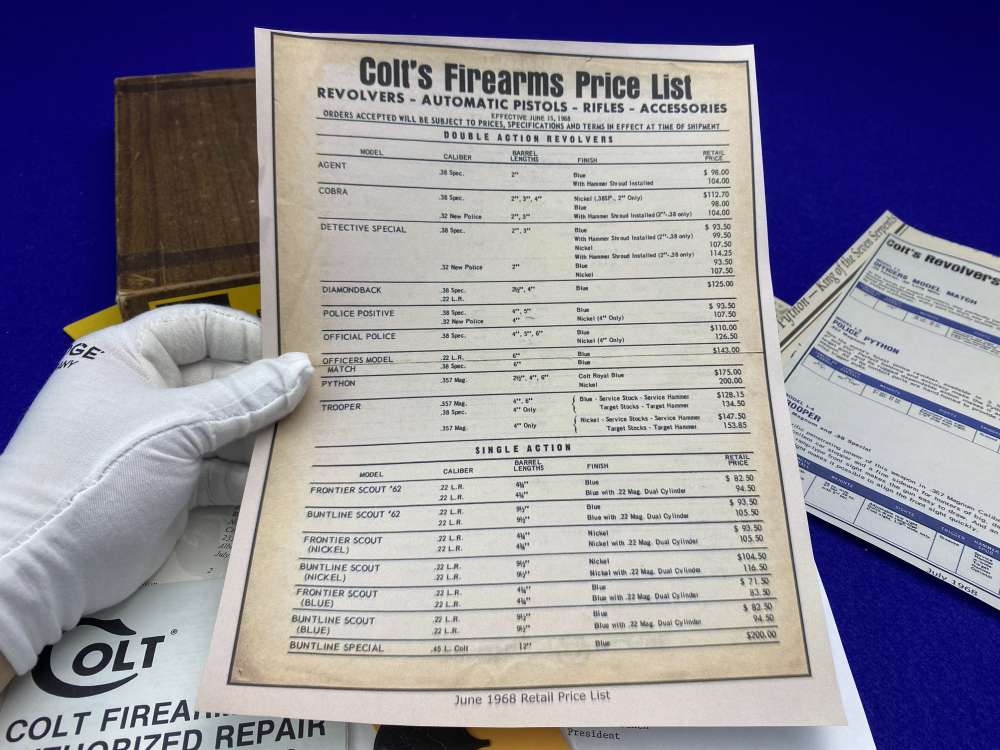 Colt's Firearms Price List
REVOLVERS - AUTOMATIC PISTOLS - RIFLES - ACCESSORIES
EFFECTIVE JUNE 15, 1968
ORDERS ACCEPTED WILL BE SUBJECT TO PRICES, SPECIFICATIONS AND TERMS IN EFFECT AT TIME OF SHIPMENT
DOUBLE ACTION REVOLVERS
MODEL CALIBER BARREL LENGTHS FINISH RETAIL PRICE
AGENT .38 Spec. 2" Blue $ 98.00
With Hammer Shroud Installed 104.00
COBRA .38 Spec. 2", 3", 4" Nickel (.38SP., 2" Only) $112.70
Blue 98.00
.32 New Police 2", 3" With Hammer Shroud Installed (2"-.38 only) 104.00
DETECTIVE SPECIAL .38 Spec. 2", 3" Blue $ 93.50
With Hammer Shroud Installed (2"-.38 only) 99.50
Nickel 107.50
With Hammer Shroud Installed (2"-.38 only) 114.25
.32 New Police 2" Blue 93.50
Nickel 107.50
DIAMONDBACK .38 Spec. 2½", 4" Blue $125.00
.22 L.R.
POLICE POSITIVE .38 Spec. 4", 5" Blue $ 93.50
.32 New Police 4" Nickel (4" Only) 107.50
OFFICIAL POLICE .38 Spec. 4", 5", 6" Blue $110.00
Nickel (4" Only) 126.50
OFFICERS MODEL .22 L.R. 6" Blue $143.00
MATCH .38 Spec. 6" Blue
PYTHON .357 Mag. 2½", 4", 6" Colt Royal Blue $175.00
Nickel 200.00
TROOPER .357 Mag. 4", 6" Blue - Service Stock - Service Hammer $128.15
.38 Spec. 4" Only Target Stocks - Target Hammer 134.50
.357 Mag. 4" Only Nickel - Service Stocks - Service Hammer $147.50
Target Stocks - Target Hammer 153.85
SINGLE ACTION
MODEL CALIBER BARREL LENGTHS FINISH RETAIL PRICE
FRONTIER SCOUT '62 .22 L.R. 4¾" Blue $ 82.50
.22 L.R. 4¾" Blue with .22 Mag. Dual Cylinder 94.50
BUNTLINE SCOUT '62 .22 L.R. 9½" Blue $ 93.50
.22 L.R. 9½" Blue with .22 Mag. Dual Cylinder 105.50
FRONTIER SCOUT .22 L.R. 4¾" Nickel $ 93.50
(NICKEL) .22 L.R. 4¾" Nickel with .22 Mag. Dual Cylinder 105.50
BUNTLINE SCOUT .22 L.R. 9½" Nickel $104.50
(NICKEL) .22 L.R. 9½" Nickel with .22 Mag. Dual Cylinder 116.50
FRONTIER SCOUT .22 L.R. 4¾" Blue $ 71.50
(BLUE) .22 L.R. 4¾" Blue with .22 Mag. Dual Cylinder 83.50
BUNTLINE SCOUT .22 L.R. 9½" Blue $ 82.50
(BLUE) .22 L.R. 9½" Blue with .22 Mag. Dual Cylinder 94.50
BUNTLINE SPECIAL .45 L. Colt 12" Blue $200.00
June 1968 Retail Price List
Python - King of the Seven Serpents
Colt's Revolvers
OFFICERS MODEL MATCH
POLICE PYTHON
TROOPER
July 1968
COLT®
COLT FIREA
THORIZED REPAIR
President